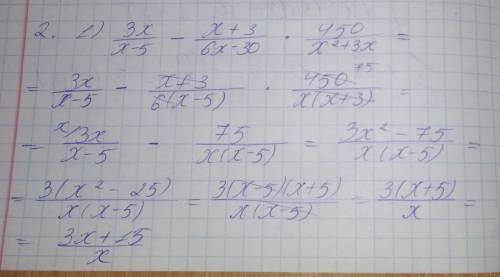 2. 1) \frac{3x}{x-5} - \frac{x+3}{6x-30} \cdot \frac{450}{x^2+3x} =
= \frac{3x}{x-5} - \frac{x+3}{6(x-5)} \cdot \frac{450^{75}}{x(x+3)} =
= \frac{^{x/}3x}{x-5} - \frac{75}{x(x-5)} = \frac{3x^2-75}{x(x-5)} =
= \frac{3(x^2-25)}{x(x-5)} = \frac{3(x-5)(x+5)}{x(x-5)} = \frac{3(x+5)}{x} =
= \frac{3x+15}{x}